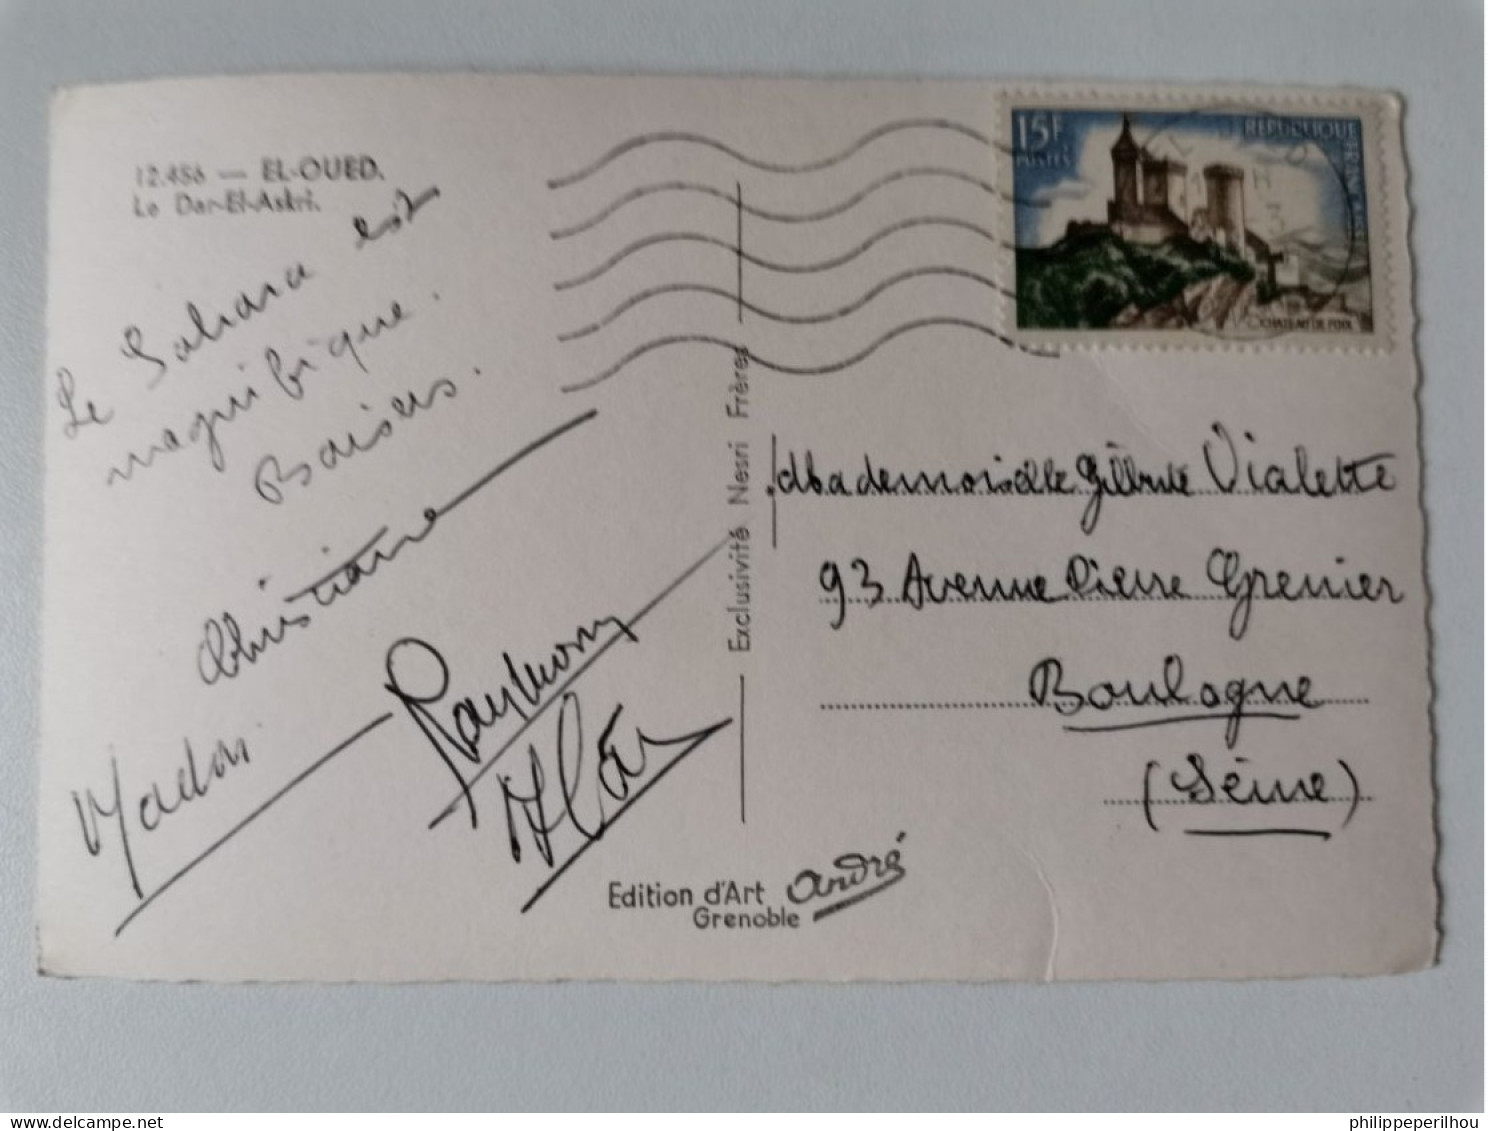 12.456 — EL-OUED.
Le Dar-El-Askri.
Le Sahara est
magnifique.
Baisers.
Christiane
Raymon
Alain
Exclusivité Nesri Frères
Edition d'Art André
Grenoble
15F
POSTES
RÉPUBLIQUE FRANÇAISE
CHÂTEAU DE FOIX
Mademoiselle Gilberte Vialette
93 Avenue Pierre Grenier
Boulogne
(Seine)
philippeperilhou
delcampe.net